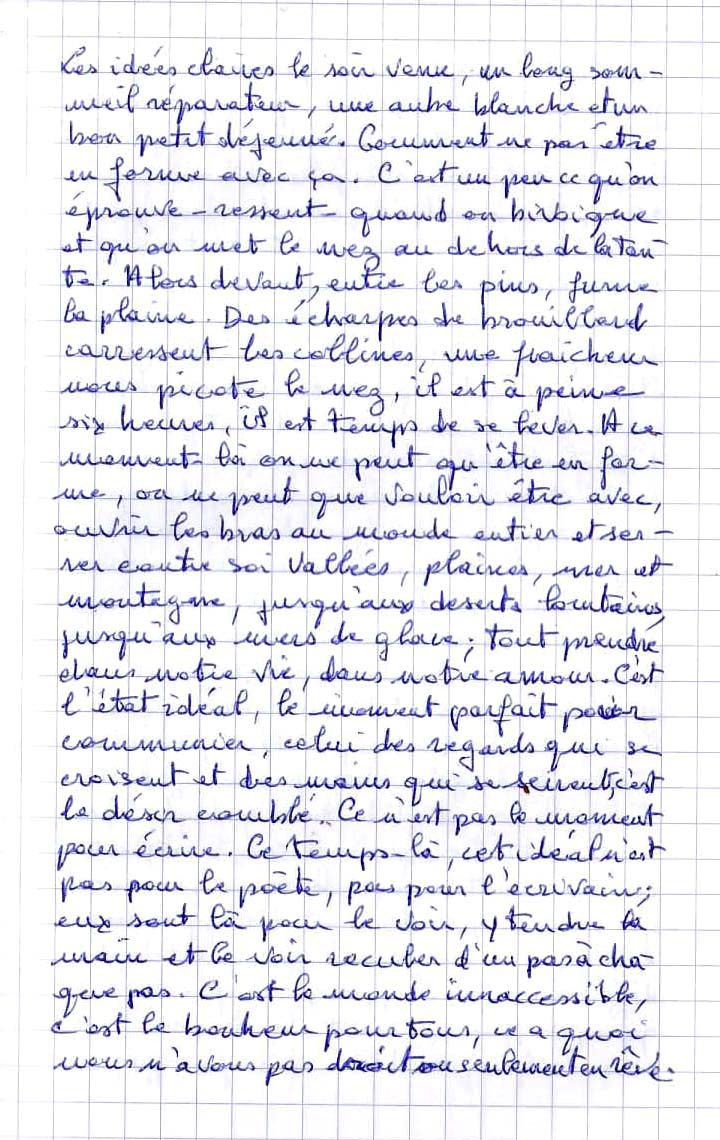 Les idées claires le soir venu, un long som-
meil réparateur, une aube blanche et un
bon petit déjeuné. Comment ne pas être
en forme avec ça. C'est un peu ce qu'on
éprouve - ressent - quand on bivouaque
et qu'on met le nez au dehors de la ten-
te. Alors devant, entre les pins, fume
la plaine. Des écharpes de brouillard
carressent les collines, une fraîcheur
nous picote le nez, il est à peine
six heures, il est temps de se lever. A ce
moment-là on ne peut qu'être en for-
me, on ne peut que vouloir être avec,
ouvrir les bras au monde entier et ser-
rer contre soi vallées, plaines, mer et
montagne, jusqu'aux deserts lointains,
jusqu'aux mers de glace ; tout prendre
dans notre vie, dans notre amour. C'est
l'état idéal, le moment parfait pour
communier, celui des regards qui se
croisent et des mains qui se serrent, c'est
le désir comblé. Ce n'est pas le moment
pour écrire. Ce temps-là, cet idéal n'est
pas pour le poète, pas pour l'écrivain ;
eux sont là pour le voir, y tendre la
main et le voir reculer d'un pas à cha-
que pas. C'est le monde innaccessible,
c'est le bonheur pour tous, ce a quoi
nous n'avons pas droit ou seulement en rêve.